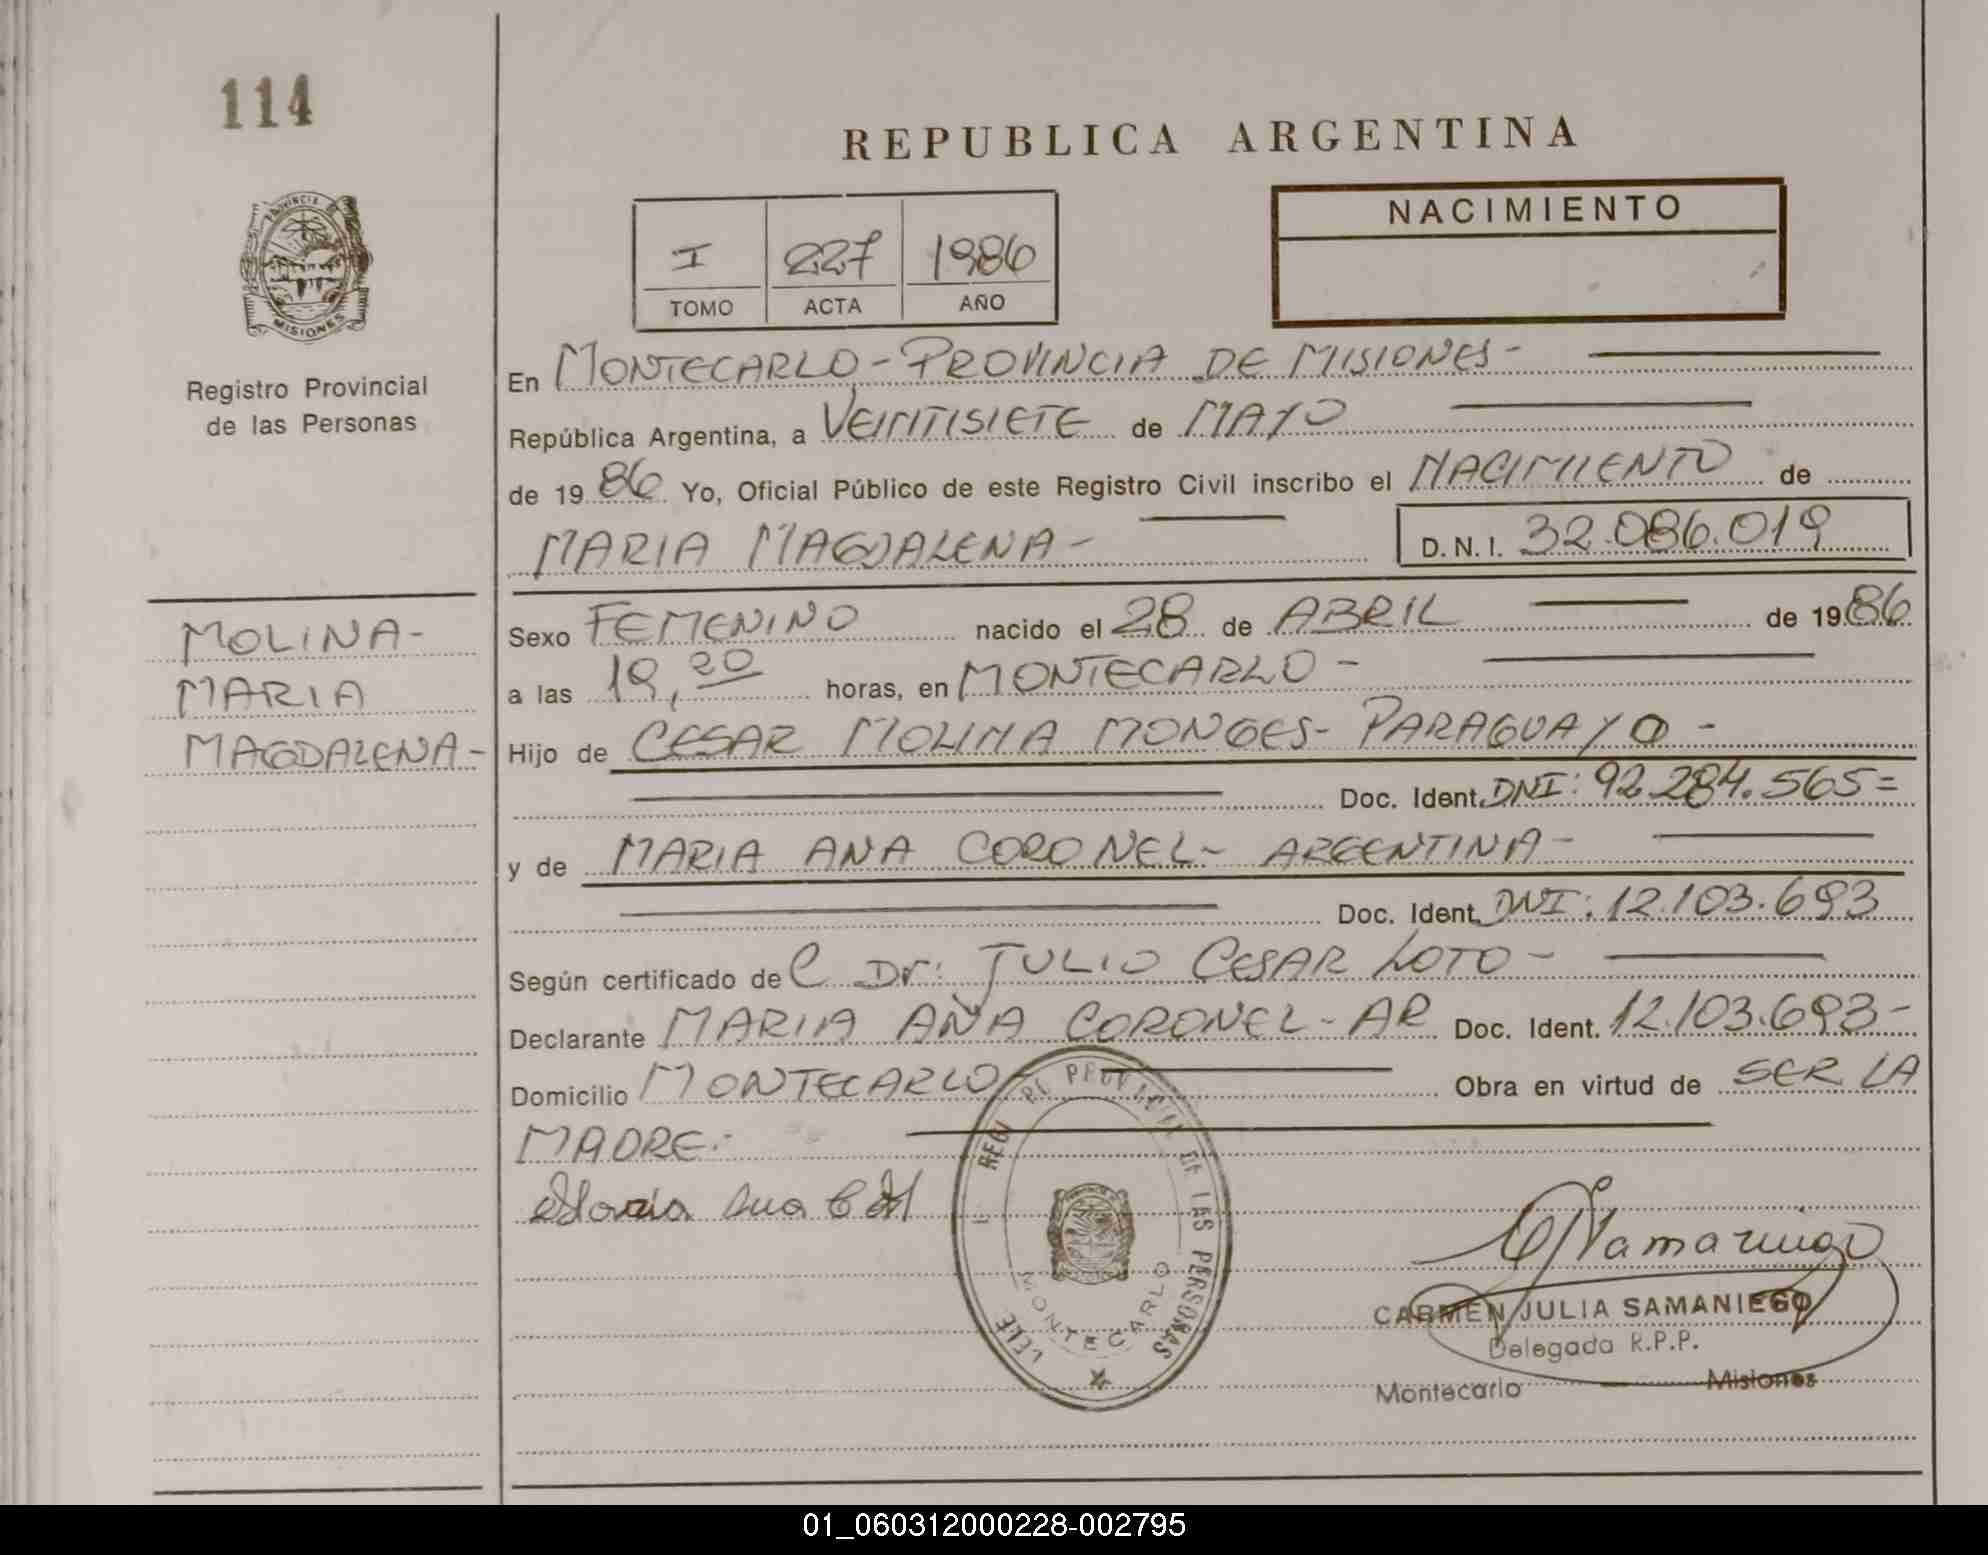 114
REPUBLICA ARGENTINA
PROVINCIA DE
MISIONES
Registro Provincial
de las Personas
I 227 1986
TOMO ACTA AÑO
NACIMIENTO
En MONTECARLO - PROVINCIA DE MISIONES -
República Argentina, a VEINTISIETE de MAYO
de 19 86 Yo, Oficial Público de este Registro Civil inscribo el NACIMIENTO de
MARIA MAGDALENA - D.N.I. 32.086.019
MOLINA -
MARIA
MAGDALENA -
Sexo FEMENINO nacido el 28 de ABRIL de 19 86
a las 19,20 horas, en MONTECARLO -
Hijo de CESAR MOLINA MONGES - PARAGUAYO -
Doc. Ident. DNI: 92.284.565 =
y de MARIA ANA CORONEL - ARGENTINA -
Doc. Ident. DNI: 12.103.693
Según certificado de C Dr: JULIO CESAR LOTO -
Declarante MARIA ANA CORONEL - AR Doc. Ident. 12.103.693 -
Domicilio MONTECARLO - Obra en virtud de SER LA
MADRE:
Maria Ana
PROVINCIAL DE LAS PERSONAS
MONTECARLO
CARMEN JULIA SAMANIEGO
Delegada R.P.P.
Montecarlo Misiones
01_060312000228-002795